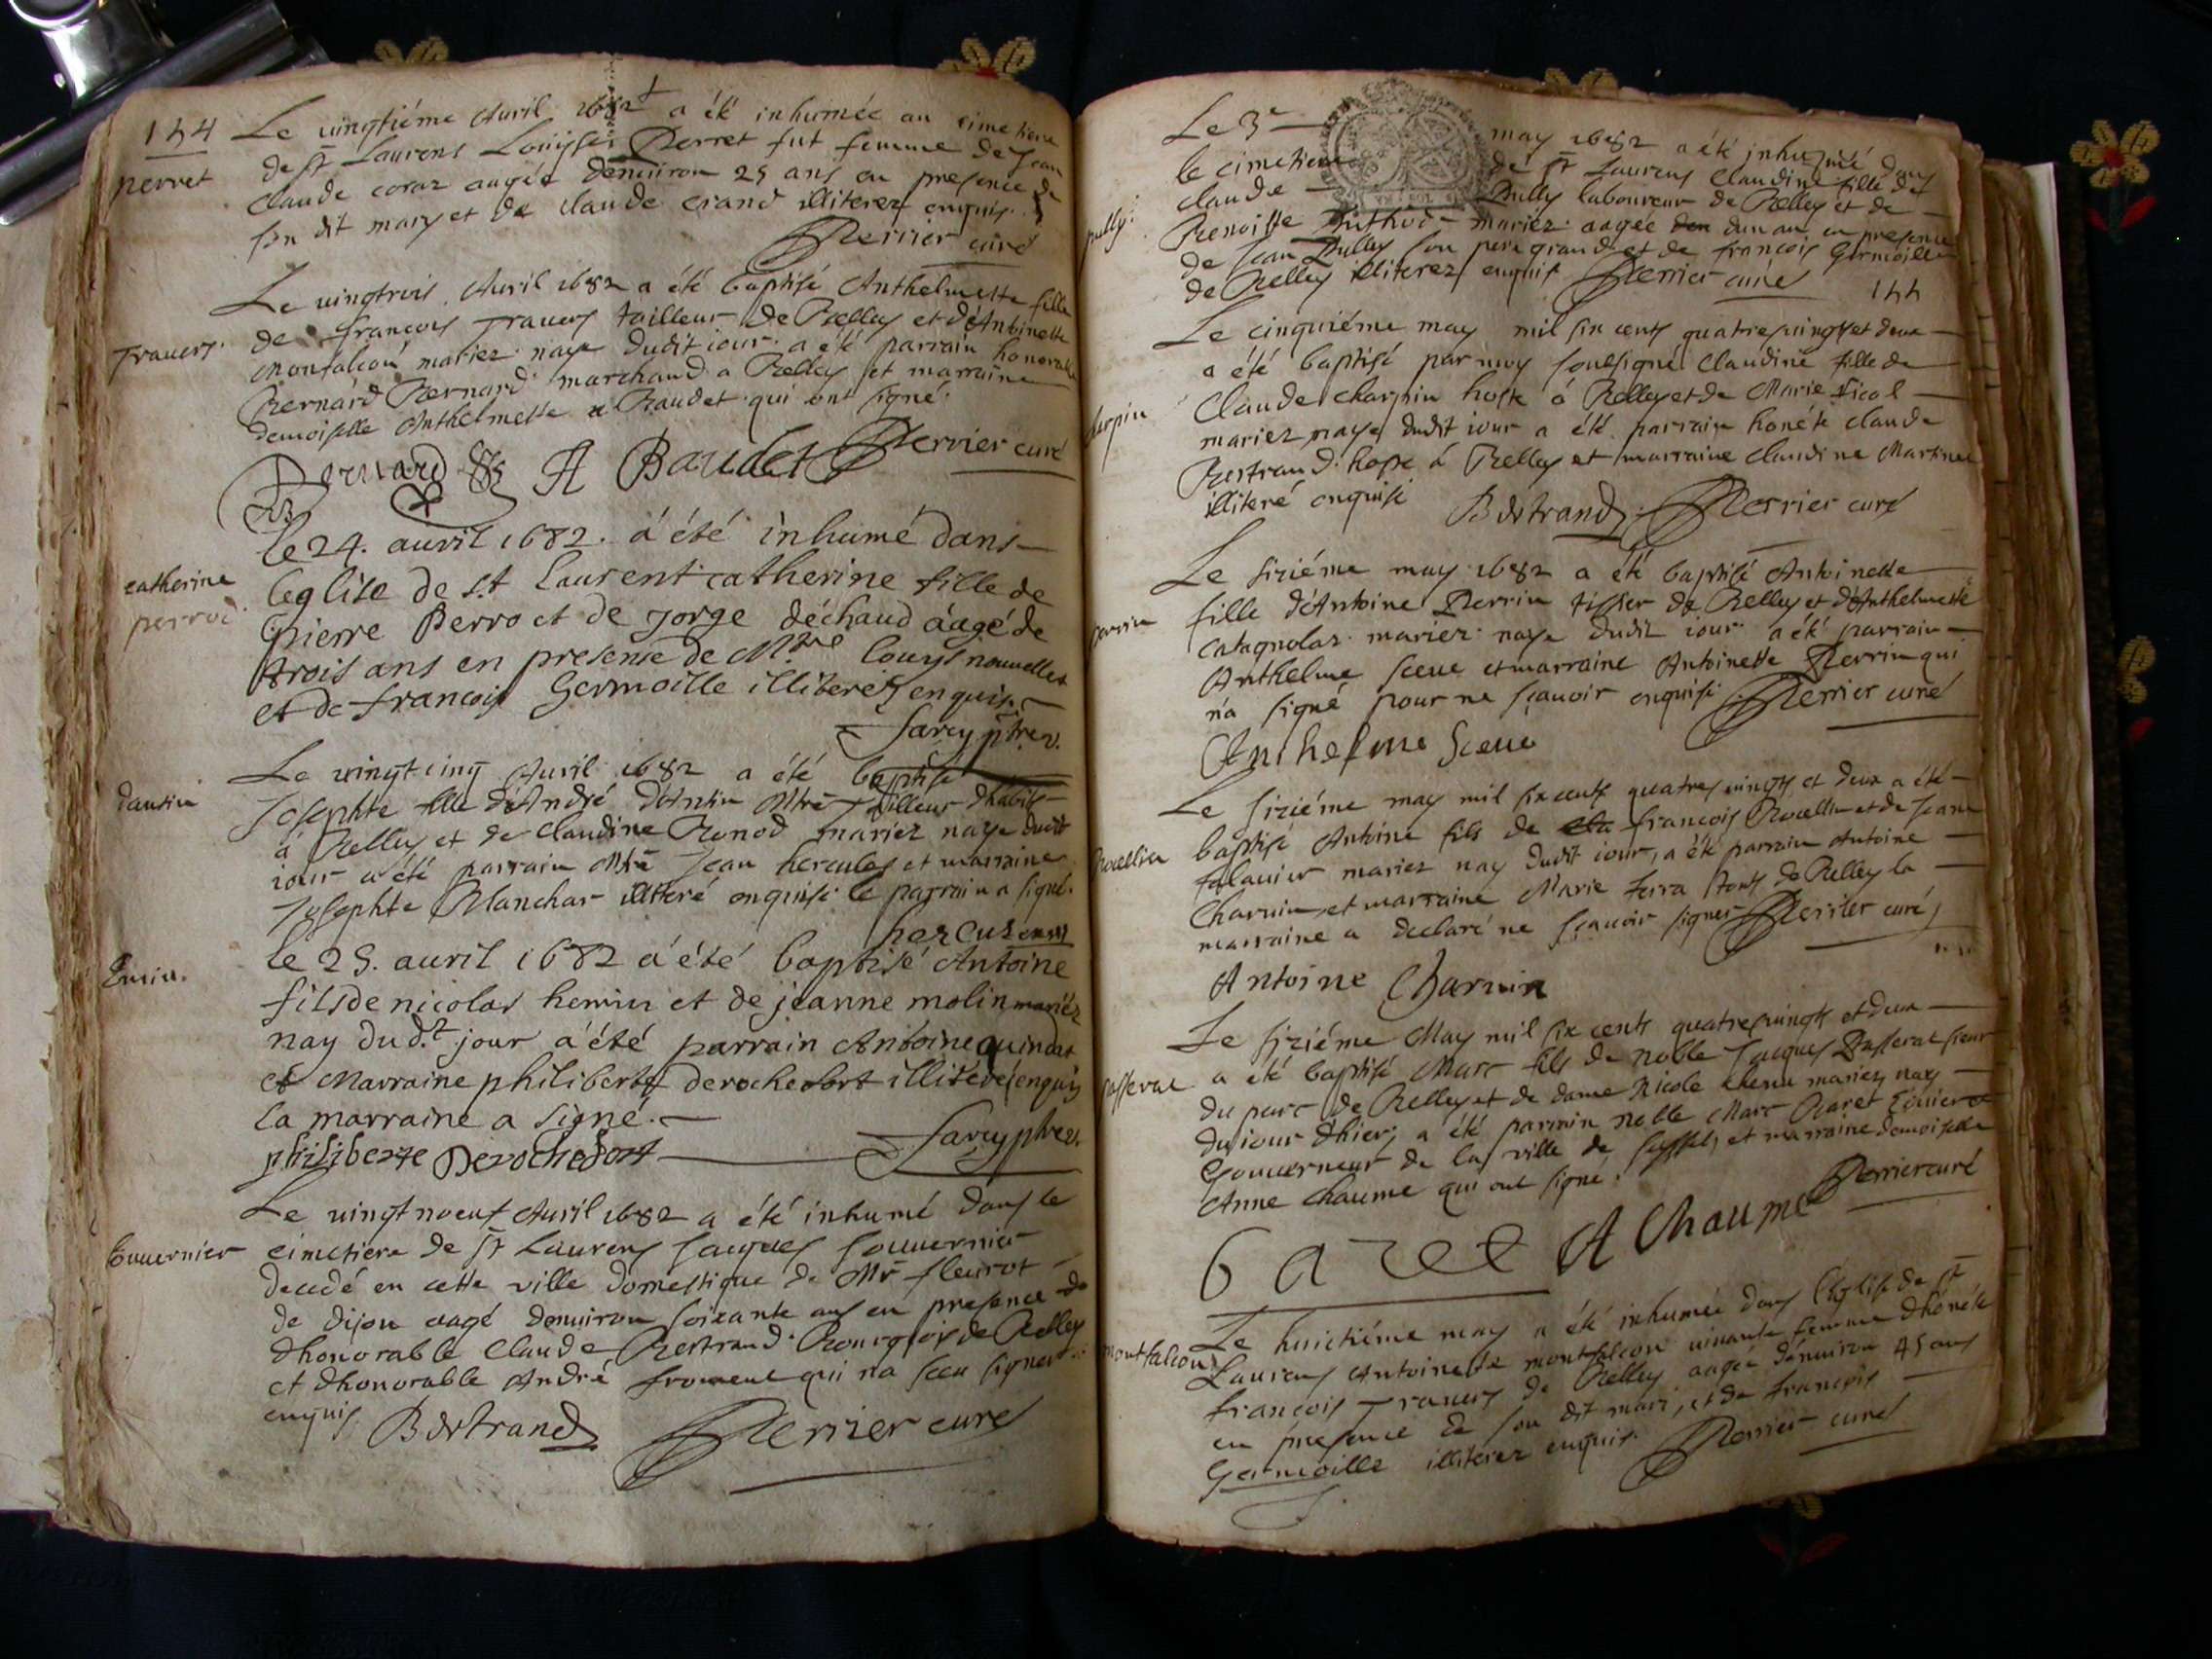 154
Le vingtiéme Auril 1682 a été inhumée au cimetiere
perret
de st Laurens Louyse Perret fut femme de Jean
Claude coraz aagée denuiron 25 ans en presence de
son dit mary et de claude crand illiterez enquis.
Perrier curé
Le uingtrois Auril 1682 a été baptisé Anthelmette fille
Trauers.
de françois Trauers tailleur de Belley et d'Antoinette
monfalcon mariez naye dudit iour a été parrain honorable
Bernard Bernard marchand a Belley et marraine
demoiselle Anthelmette Baudet qui ont signé.
Bernard A Baudet Perrier curé
le 24. auril 1682. á été inhumé dans
catherine
perrod
leglise de s.t laurent catherine fille de
pierre Perro et de jorge déchaud áagé de
trois ans en presense de M.tre louys nouuelles
et de françois Germoille illiterez enquis.
Sarcy ptre v.
Le uingt cinq Auril 1682 a été baptisé
dantin
Josephte fille d'André d'Antin Mtre Tailleur dhabits
á Belley et de Claudine Bonod mariez naye dudit
iour a été parrain Mtre Jean hercules et marraine
Josephte Blanchar illiteré enquise le parrain a signé.
hercules
le 25. auril 1682 á été baptisé Antoine
fils de nicolas hemin et de jeanne molin mariéz
nay dud.t jour á été parrain Antoine
et Marraine philiberte derochefort illiteré enquis
la marraine a signé.
philiberte Derochefort Sarcy ptre v.
Le uingt noeuf Auril 1682 a été inhumé dans le
Gouuernier
cimetiere de st Laurens Jacques Gouuernier
decedé en cette ville domestique de Mr fleurot
de dijon aagé denuiron soixante ans en presence de
dhonorable Claude Bertrand Bourgeois de Belley
et dhonorable André froment qui na sceu signer
enquis
Bertrand Perrier curé
Le 3e may 1682 a été inhumé dans
le cimetiere de st Laurens Claudine fille de
pully.
claude Pully laboureur de Belley et de
Benoitte Authod mariez aagée dun an en presence
de Jean Pully son pere grand et de françois Germoille
de Belley illiterez enquis Perrier curé
155
Le cinquiéme may mil six cents quatre uingts et deux
a été baptisé par moy soubsigné Claudine fille de
charpin
Claude charpin hoste á Belley et de Marie Nicol
mariez naye dudit iour a été parrain honéte claude
Bertrand hoste á Belley et marraine claudine Martinet
illiteré enquise
Bertrand Perrier curé
Le siziéme may 1682 a été baptisé Antoinette
perrin
fille d'Antoine Perrin tissier de Belley et d'Anthelmette
Catagnolas mariez naye dudit iour a été parrain
Anthelme Sceue et marraine Antoinette Perrin qui
n'a signé pour ne scauoir enquise Perrier curé
Anthelme Sceue
Le siziéme may mil six cents quatre uingts et deux a été
baptisé Antoine fils de françois Rocellin et de Jeane
falauier mariez nay dudit iour, a été parrain Antoine
Charuin et marraine Marie Ferra touts de Belley la
marraine a declaré ne scauoir signer Perrier curé
Antoine Charuin
Le siziéme May mil six cents quatre uingts et deux
passerat
a été baptisé Marc fils de noble Jacques Passerat sieur
du parc de Belley et de dame Nicole mariez nay
du iour d'hier, a été parrain noble Marc Garet
Gouuerneur de la ville de Seyssel, et marraine demoiselle
Anne Chaume qui ont signé.
Perrier curé
Garet A Chaume
Le huictiéme may a été inhumée dans l'église de st
montfalcon
Laurens Antoinette montfalcon uiuante femme dhonéte
françois Trauers de Belley aagée d'énuiron 45 ans
en presence de son dit mari, et de françois
Germoille illiterez enquis. Perrier curé